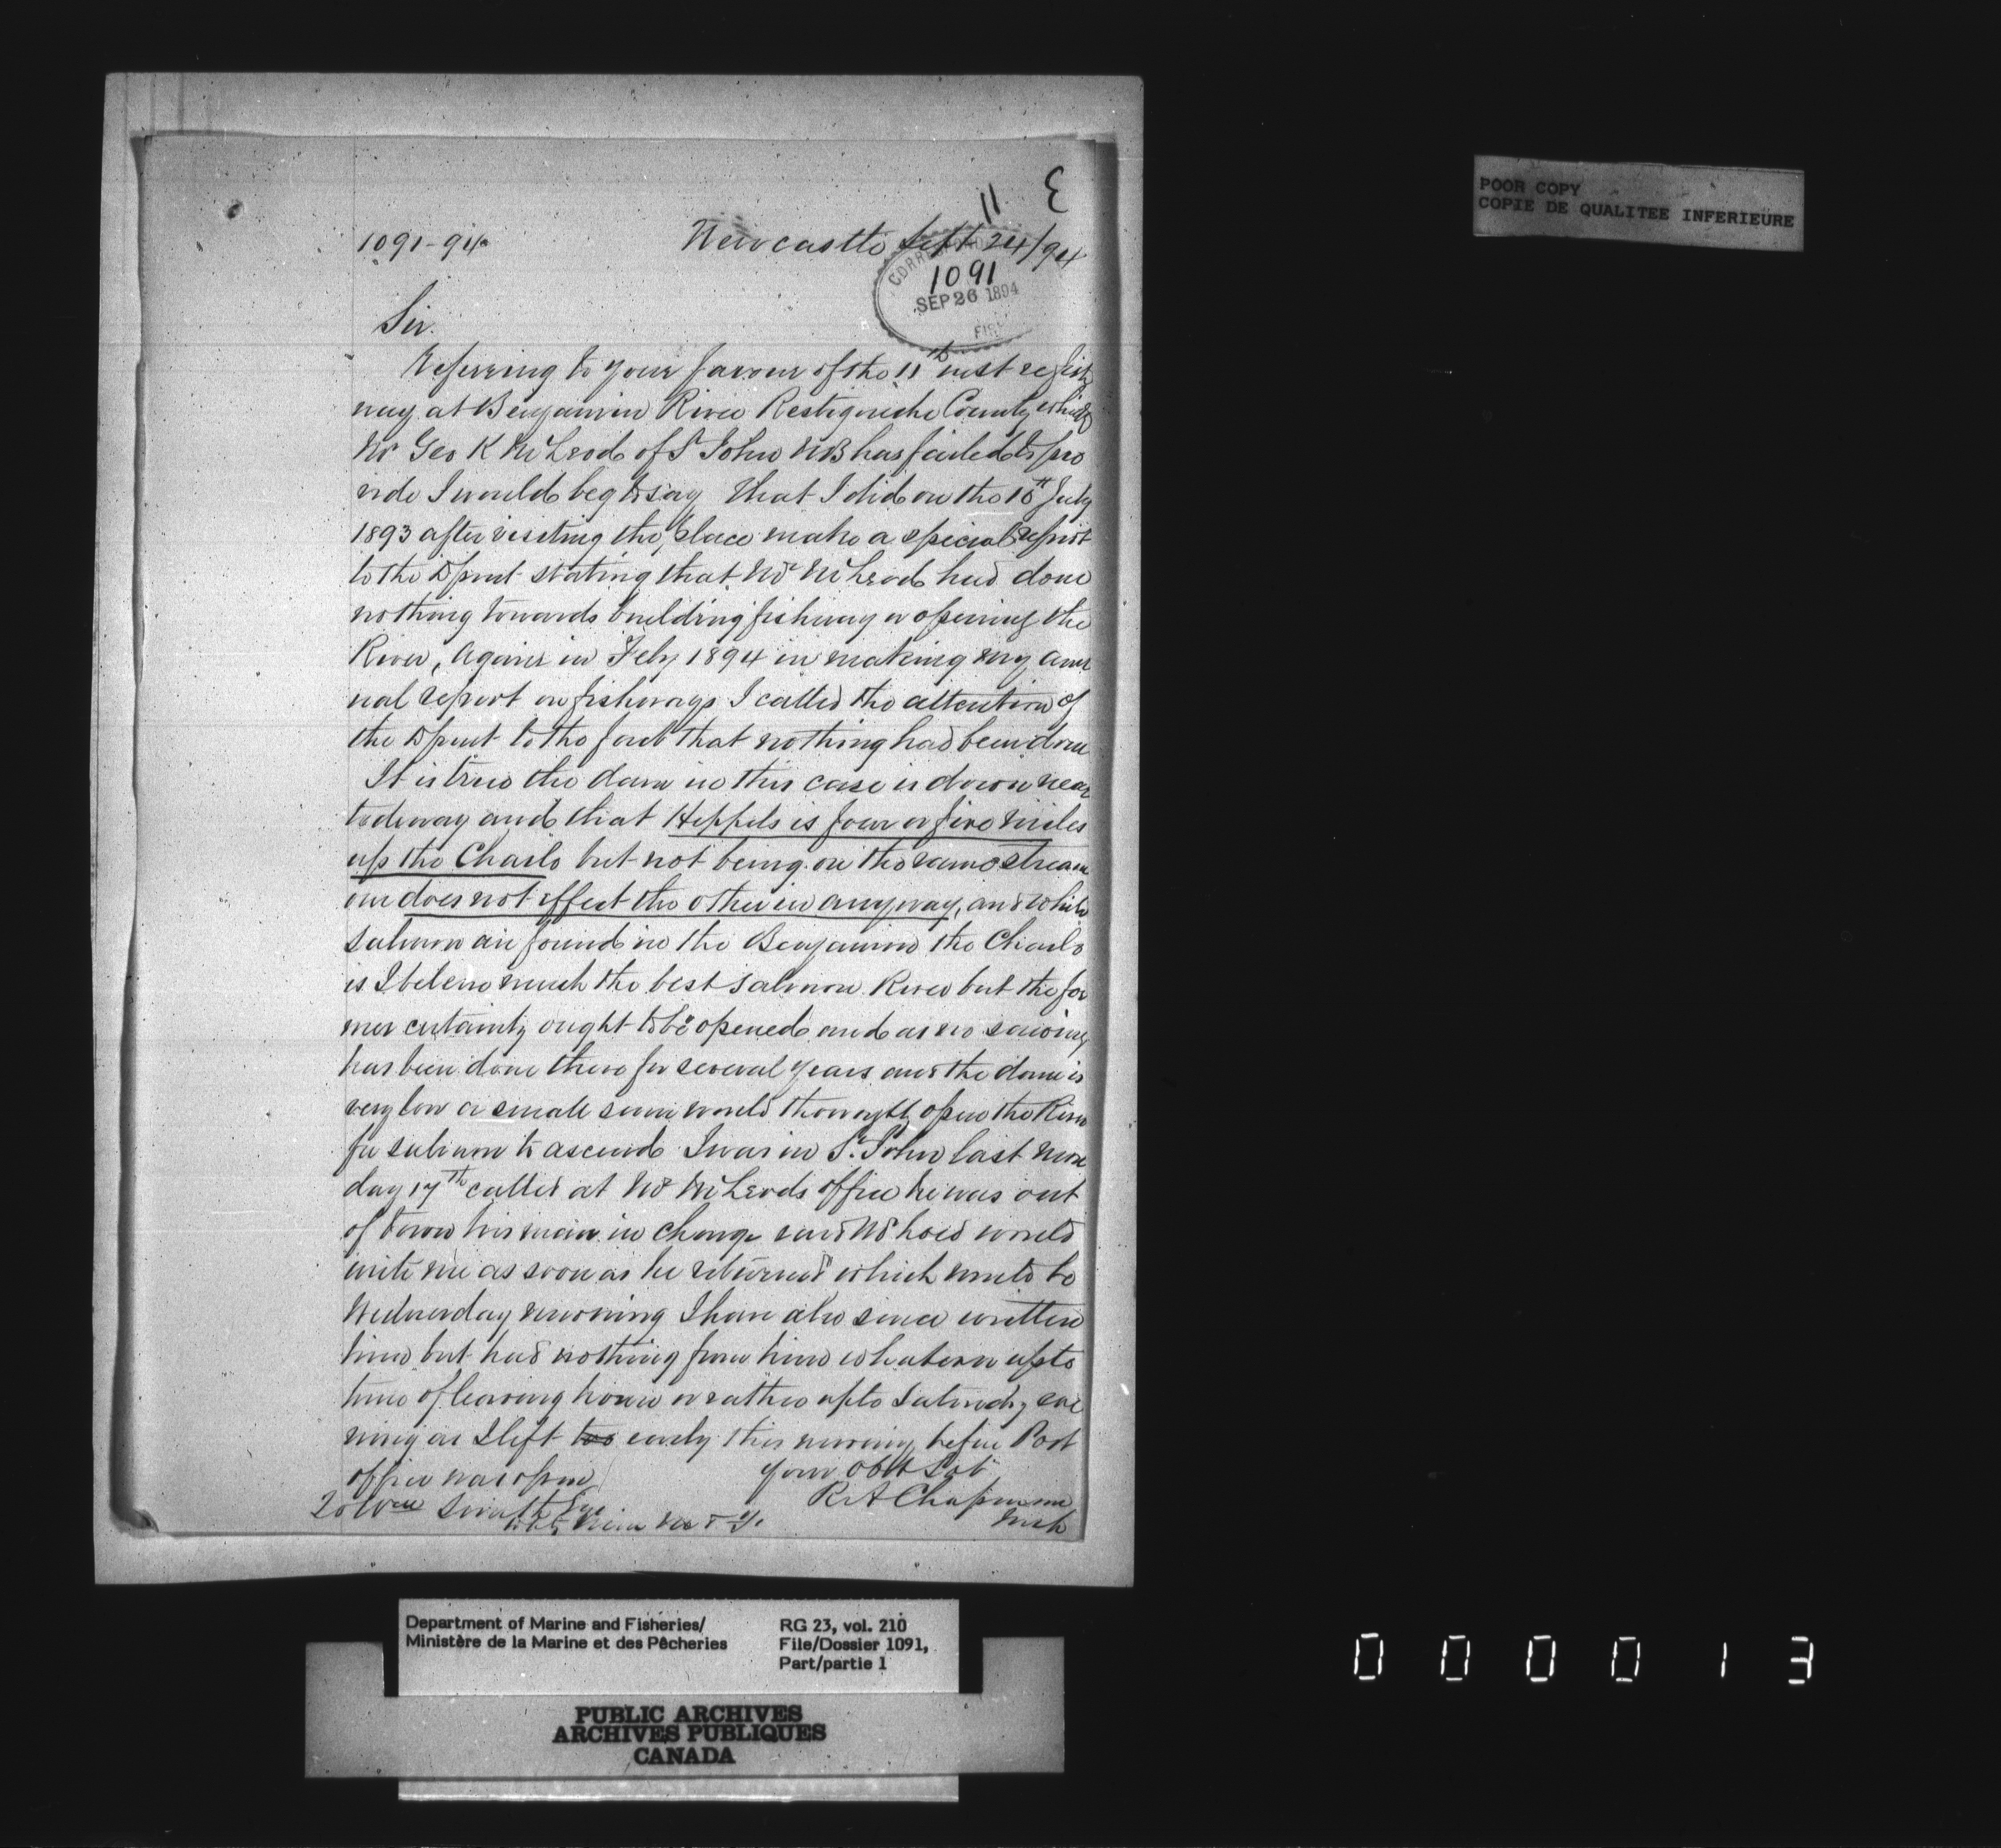 11 3
1091-94
Newcastle Sept 24/94
CORRE
1091
SEP 26 1894
FISH
Sir.
Referring to your favour of the 11th inst re fish
way at Benjamin River Restigouche County which
Mr Geo K McLeod of St John NB has failed to pro
vide I would beg to say that I did on the 10th July
1893 after visiting the place make a special report
to the Dpmt stating that Mr McLeod had done
nothing towards building fishway or opening the
River, Again in Feby 1894 in making my ann
ual report on fishways I called the attention of
the Dpmt to the fact that nothing had been done
It is true the dam in this case is down near
tideway and that Heppels is four or five miles
up the Charlo but not being on the same stream
one does not effect the other in anyway, and while
salmon are found in the Benjamin the Charlo
is I beleive much the best salmon River but the for
mer certainly ought to be opened and as no sawing
has been done there for several years and the dam is
very low a small sum would thoroughly open the River
for salmon to ascend I was in St. John last Mon
day 17th called at Mr McLeods office he was out
of town his man in charge said Mr would
write me as soon as he returned which would be
Wednesday morning I have also since written
him but had nothing from him whatever up to
time of leaving home or rather up to Saturday eve
ning as I left too early this morning before Post
office was open
Your Obt Svt
R A Chapman
Insp
To Wm Smith Esq
Dpty Min M & F.
POOR COPY
COPIE DE QUALITEE INFERIEURE
Department of Marine and Fisheries/
Ministère de la Marine et des Pêcheries
RG 23, vol. 210
File/Dossier 1091,
Part/partie 1
PUBLIC ARCHIVES
ARCHIVES PUBLIQUES
CANADA
000013